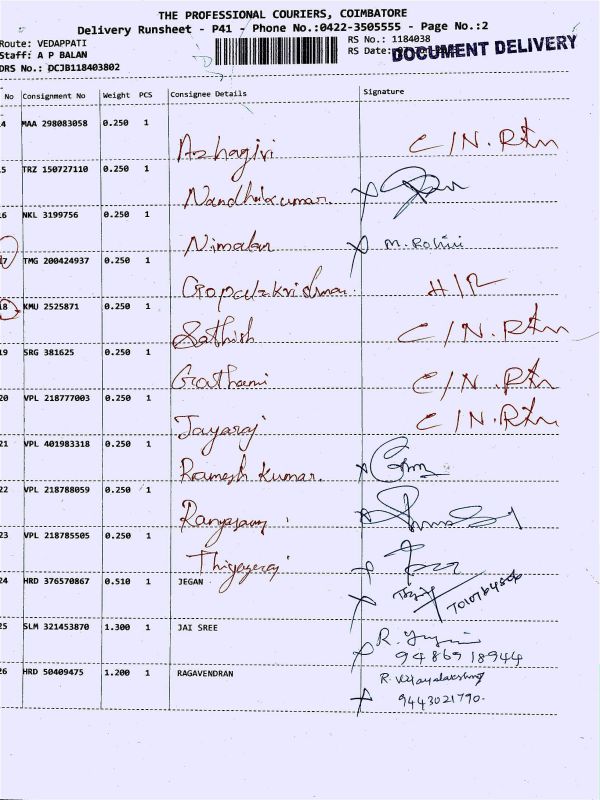 THE PROFESSIONAL COURIERS, COIMBATORE
Delivery Runsheet - P41 - Phone No.:0422-3505555 - Page No.:2
Route: VEDAPPATI
RS No.: 1184038
Staff: A P BALAN
RS Date:
DOCUMENT DELIVERY
DRS No.: DCJB118403802
No Consignment No Weight PCS Consignee Details Signature
4 MAA 298083058 0.250 1
Azhagiri C/N. Rtn
5 TRZ 150727110 0.250 1
Nandhakumar.
6 NKL 3199756 0.250 1
Nimalan M. Rohini
7 TMG 200424937 0.250 1
Gopalakrishnan
18 KMU 2525871 0.250 1
Sathish C/N. Rtn
19 SRG 381625 0.250 1
Gothami C/N. Rtn
20 VPL 218777003 0.250 1
Jayaraj C/N. Rtn
21 VPL 401983318 0.250 1
Ramesh Kumar.
22 VPL 218788059 0.250 1
23 VPL 218785505 0.250 1
Thiyageraj
24 HRD 376570867 0.510 1 JEGAN
25 SLM 321453870 1.300 1 JAI SREE
9486918944
26 HRD 50409475 1.200 1 RAGAVENDRAN
R. Vijayalakshmi
9443021790.